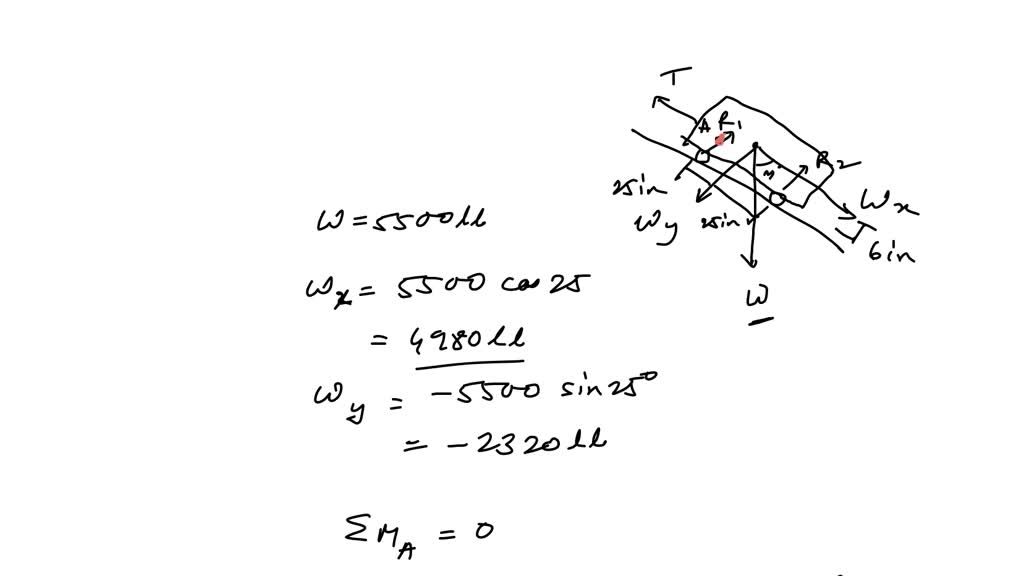 T
A R1
R2
25in
Wy 25in
Wx
6in
W
W = 5500 ll
Wx = 5500 cos 25
= 4980 ll
Wy = -5500 sin 25°
= -2320 ll
ΣMA = 0